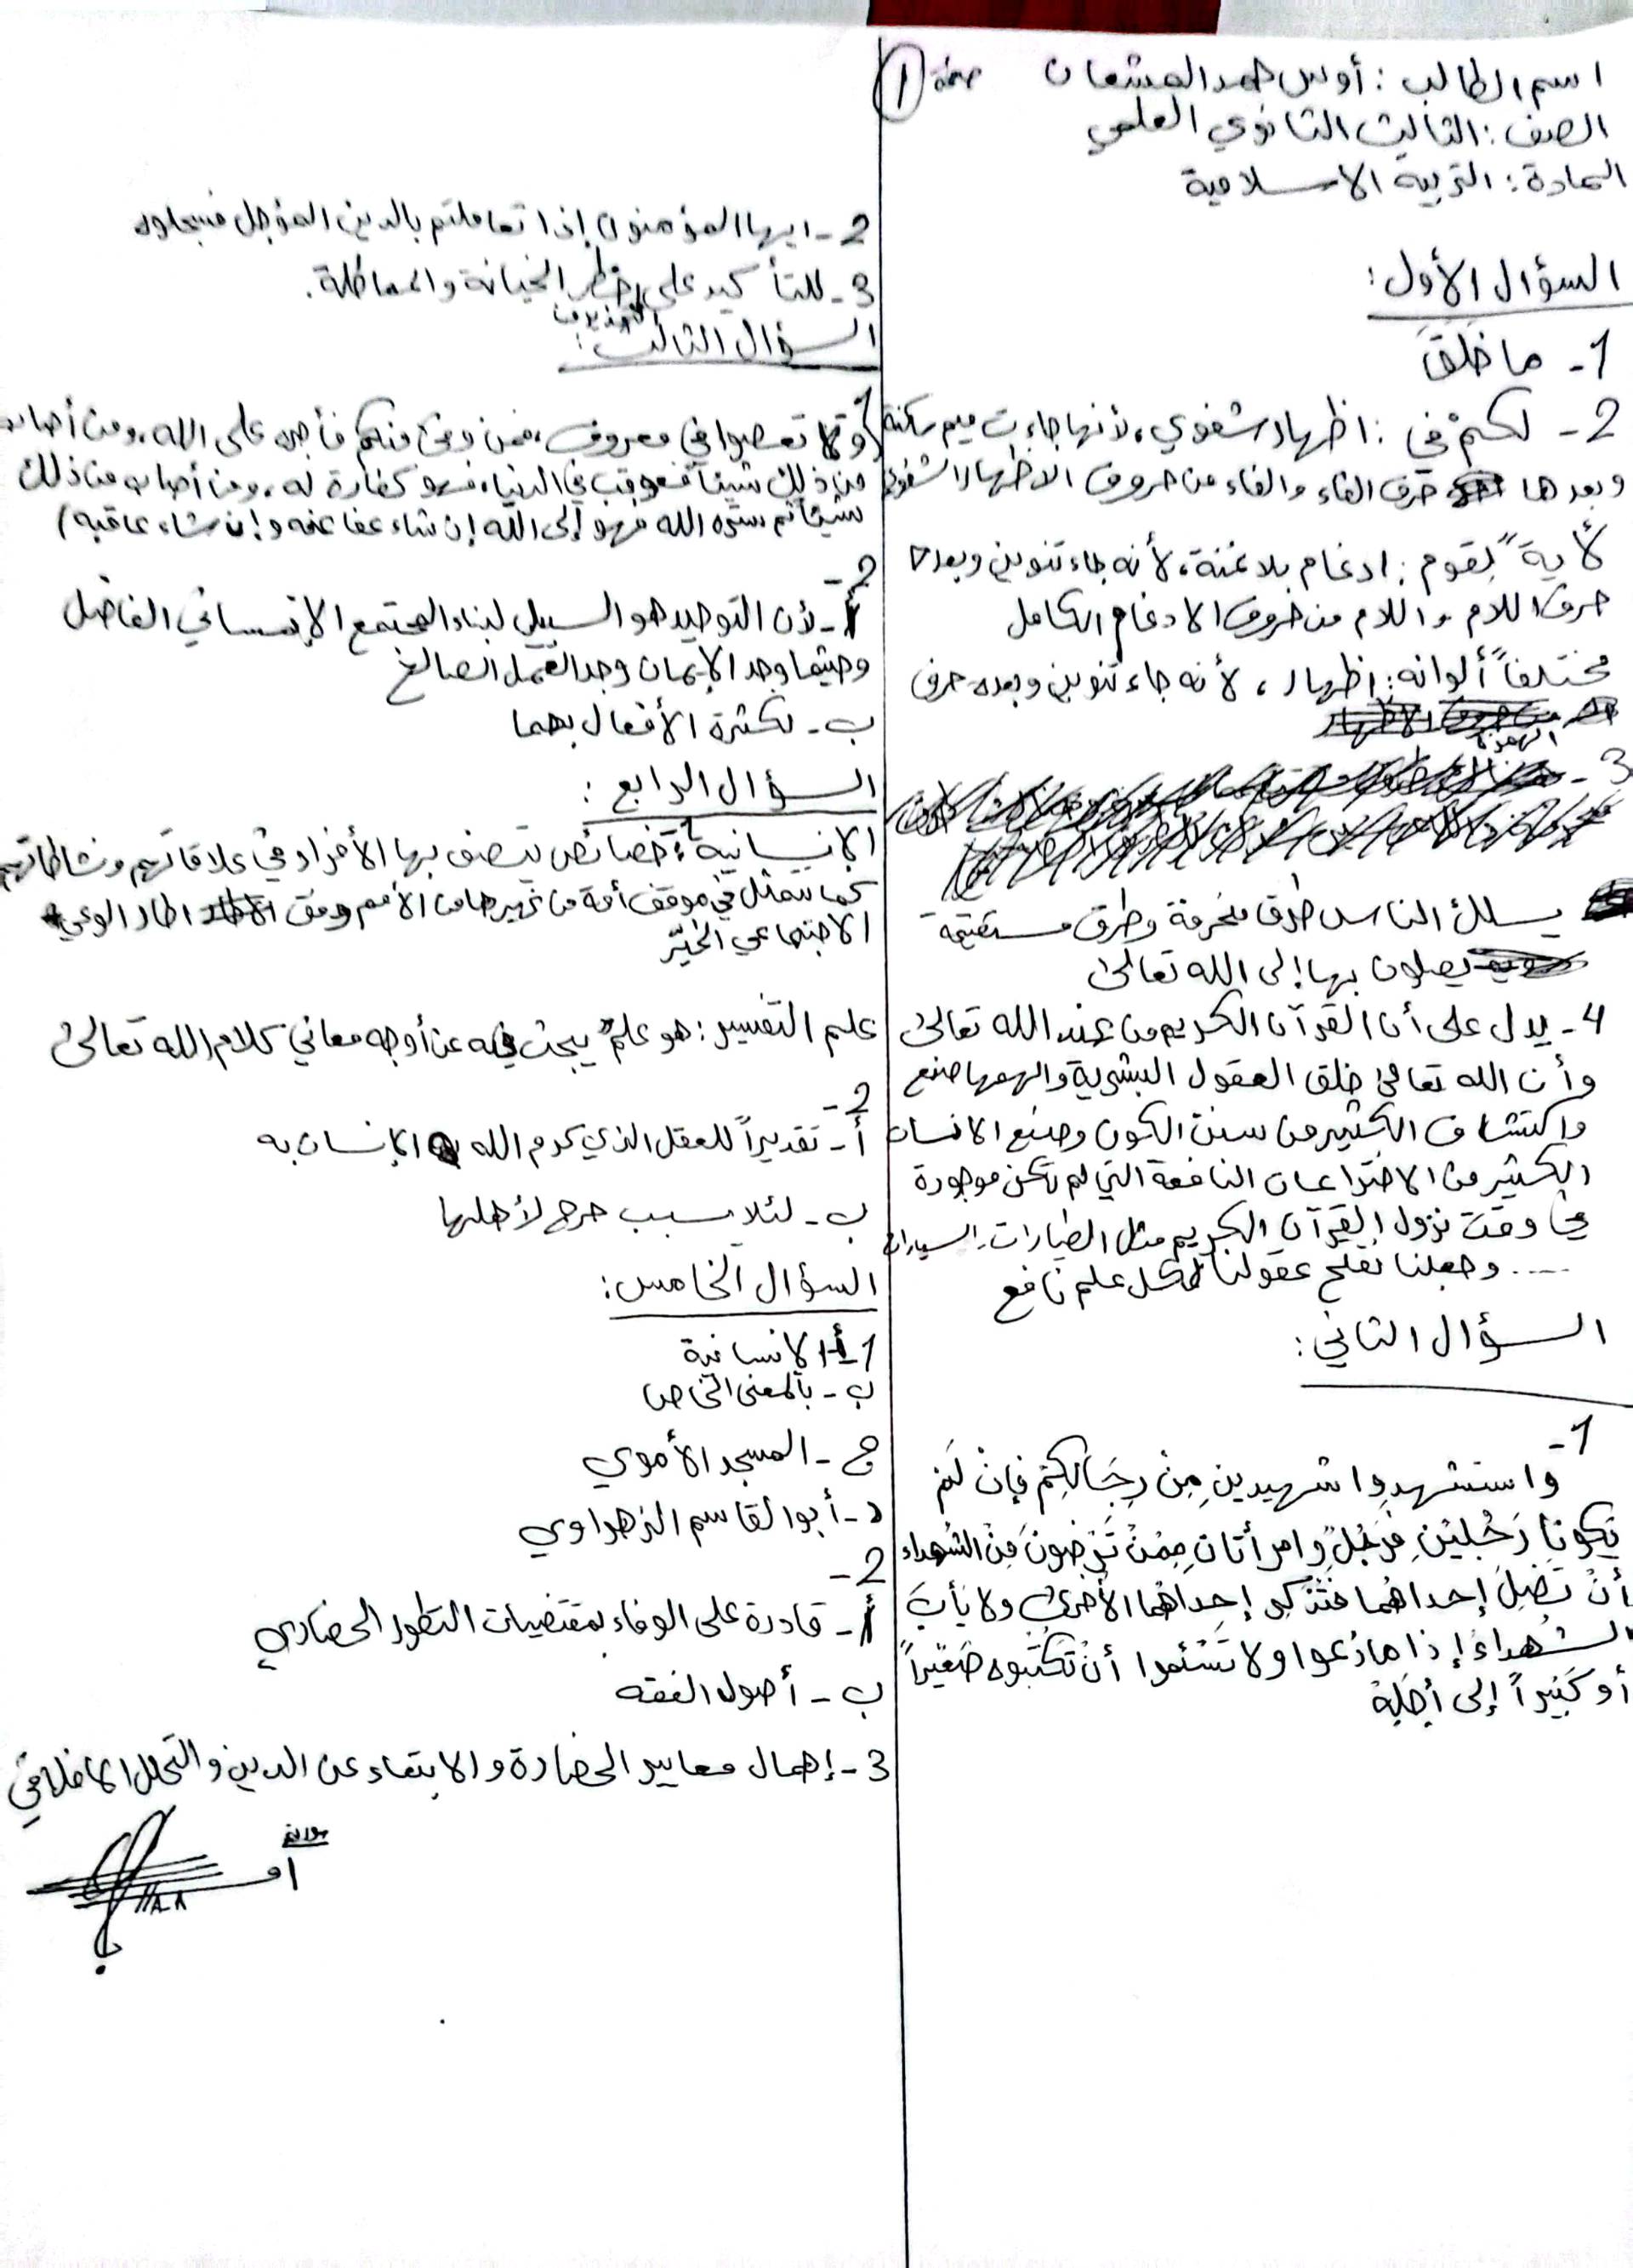 اسم الطالب : أوس حمد المشعان صفحة (1)
الصف : الثالث الثانوي العلمي
المادة : التربية الاسلامية
السؤال الأول :
1- ما خَلَقَ
2- لكمْ في : اظهار شفوي ، لأنها جاءت ميم ساكنة
وبعدها حرف الفاء والفاء من حروف الاظهار الشفوي
لأيةً لقوم : ادغام بلا غنة ، لأنه جاء تنوين وبعده
حرف اللام واللام من حروف الادغام الكامل
مختلفاً ألوانه : اظهار ، لأنه جاء تنوين وبعده حرف
الهمزة
3-
يسلك الناس طرق منحرفة وطرق مستقيمة
يصلون بها إلى الله تعالى
4- يدل على أن القرآن الكريم من عند الله تعالى
وأن الله تعالى خلق العقول البشرية والهمها صنع
واكتشاف الكثير من سنن الكون وصنع الانسان
الكثير من الاختراعات النافعة التي لم تكن موجودة
في وقت نزول القرآن الكريم مثل الطيارات والسيارات
..... وجعلنا نفتح عقولنا لكل علم نافع
السؤال الثاني :
1-
واستشهدوا شهيدينِ مِنْ رِجَالِكِمْ فإنْ لَمْ
يكونا رَجُلَيْنِ فَرَجُلٌ وامرأتانِ مِمْنْ تَرْضونَ مِنْ الشهداء
أنْ تَضِلَ إحداهُما فَتُذَكِر إحداهُما الأخرى ولا يَأبَ
الشُهداءُ إذا ما دُعوا ولا تَسْئَموا أنْ تَكْتُبوه صَغيراً
أو كَبيراً إلى أجَلِهِ
2- ايها المؤمنون إذا تعاملتم بالدين المؤجل فسجلوه
3- للتأكيد على خطر الخيانة والمماطلة .
التحذير من
السؤال الثالث :
1
(ولا تعصوا في معروف ، فمن وفى منكم فأجره على الله ، ومن أصاب
من ذلك شيئاً فعوقب في الدنيا ، فهو كفارة له ، ومن أصاب من ذلك
شيئاً ثم ستره الله فهو إلى الله إن شاء عفا عنه وإن شاء عاقبه)
2-
أ- لأن التوحيد هو السبيل لبناء المجتمع الإنساني الفاضل
وحيثما وجد الإيمان وجد العمل الصالح
ب- لكثرة الأفعال بهما
السؤال الرابع :
1
الإنسانية : خصائص يتصف بها الأفراد في علاقاتهم ونشاطاتهم
كما تتمثل في موقف أمة من غيرها من الأمم وفق اطار الوعي
الاجتماعي الخيّر
علم التفسير : هو علمٌ يبحث فيه عن أوجه معاني كلام الله تعالى
2-
أ- تقديراً للعقل الذي كرم الله الإنسان به
ب- لئلا يسبب حرج لأهلها
السؤال الخامس :
1- أ- الانسانية
ب- بالمعنى الخاص
ج- المسجد الأموي
د- أبو القاسم الزهراوي
2-
أ- قادرة على الوفاء بمقتضيات التطور الحضاري
ب- أصول الفقه
3- إهمال معايير الحضارة والابتعاد عن الدين والتحلل الاخلاقي